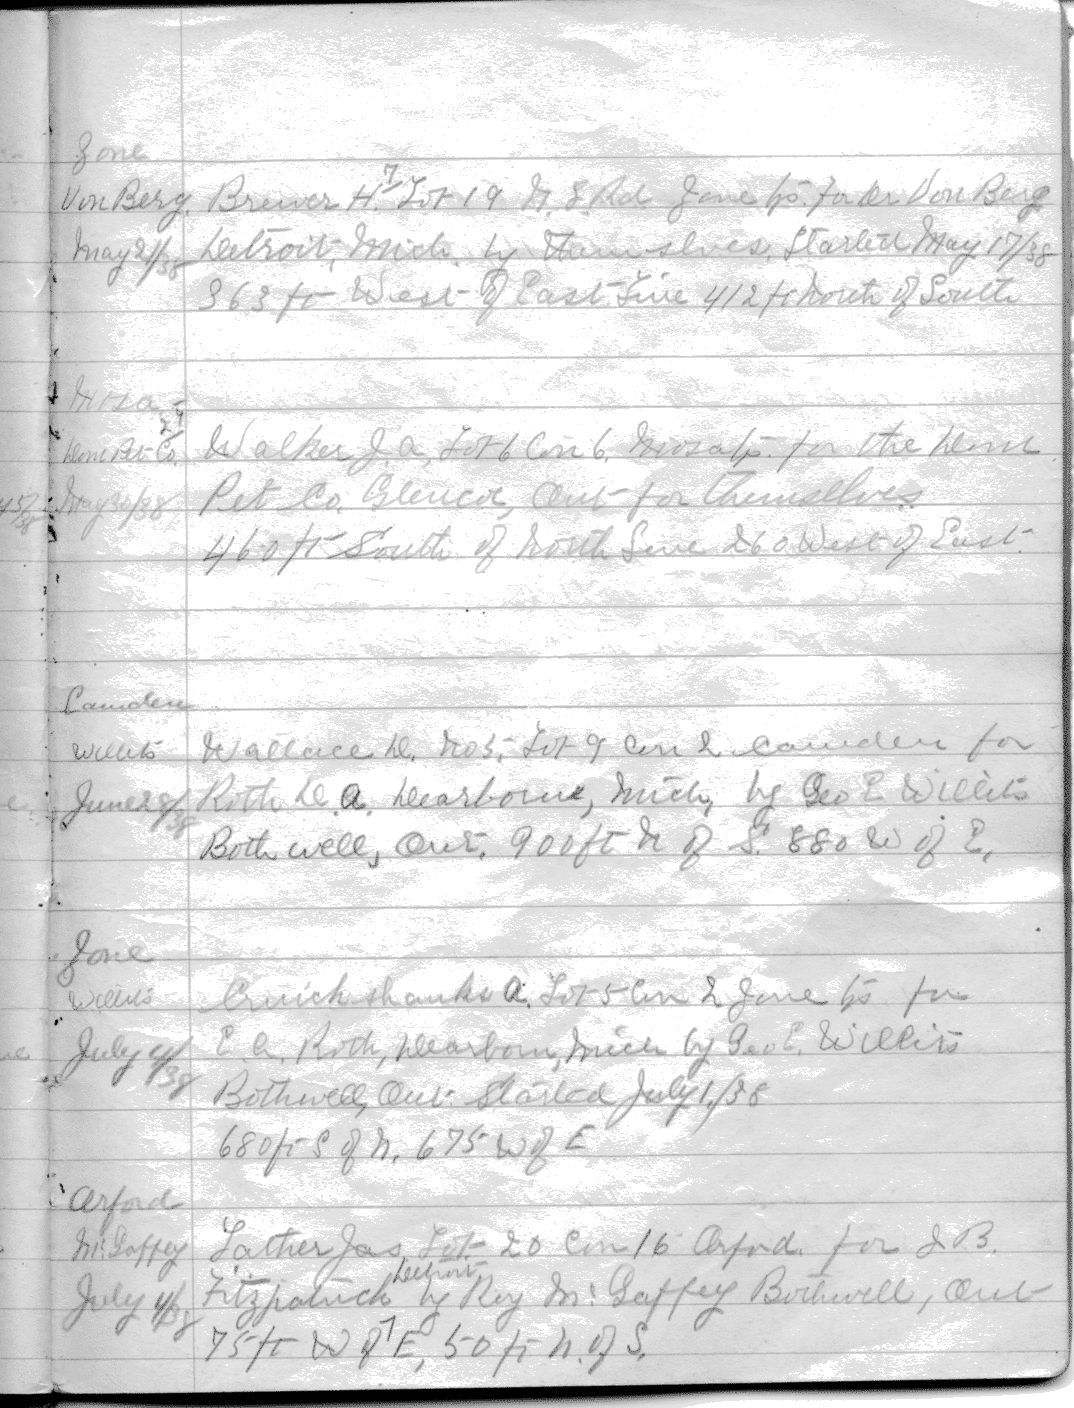 Zone
Von Berg. Brewer H. 7 Lot 19 N. S. Rd Zone tp. for Dr Von Berg
May 21/38 Detroit, Mich. by themselves. Started May 17/38
363 ft West of East Line 412 ft North of South
Mosa
Dome Pet Co. Walker J. A. Lot 6 Con 6. Mosa tp. for the Dome
May 30/38 Pet Co. Glencoe, Ont for themselves.
460 ft South of North Line 260 West of East.
Camden
Willits Wallace D. No 5. Lot 9 Con 2 Camden for
June 28/38 Roth A. Dearborn, Mich, by Geo E Willits
Bothwell, Ont. 900 ft N of S. 880 W of E.
Zone
Willits Cruickshanks A. Lot 5 Con 2 Zone tp for
July 4/38 E. A. Roth, Dearborn, Mich by Geo E. Willits
Bothwell, Ont. Started July 1/38
680 ft S of N. 675 W of E
Orford
McGaffey Lather Jas. Lot 20 Con 16 Orford. for J. B.
July 4/38 Fitzpatrick Detroit by Roy McGaffey Bothwell, Ont
75 ft W of E, 50 ft N. of S.